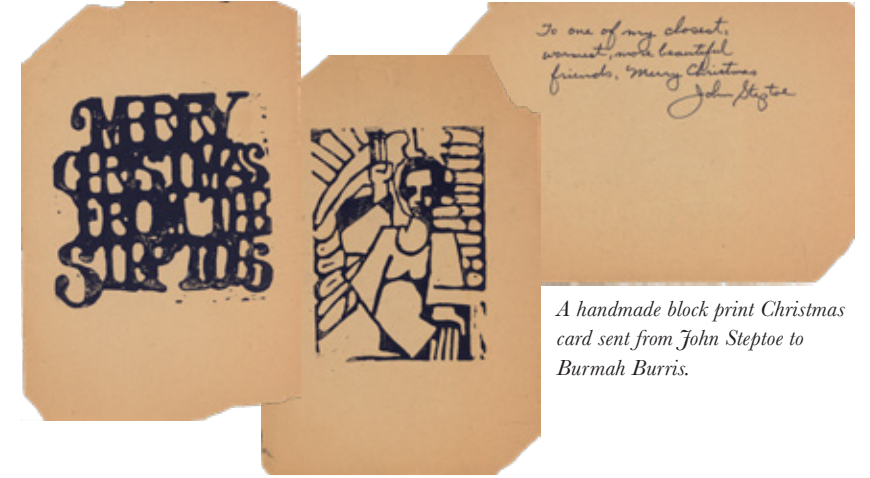 MERRY
CHRISTMAS
FROM THE
STEPTOES
To one of my closest,
warmest, most beautiful
friends, Merry Christmas
John Steptoe
A handmade block print Christmas
card sent from John Steptoe to
Burmah Burris.